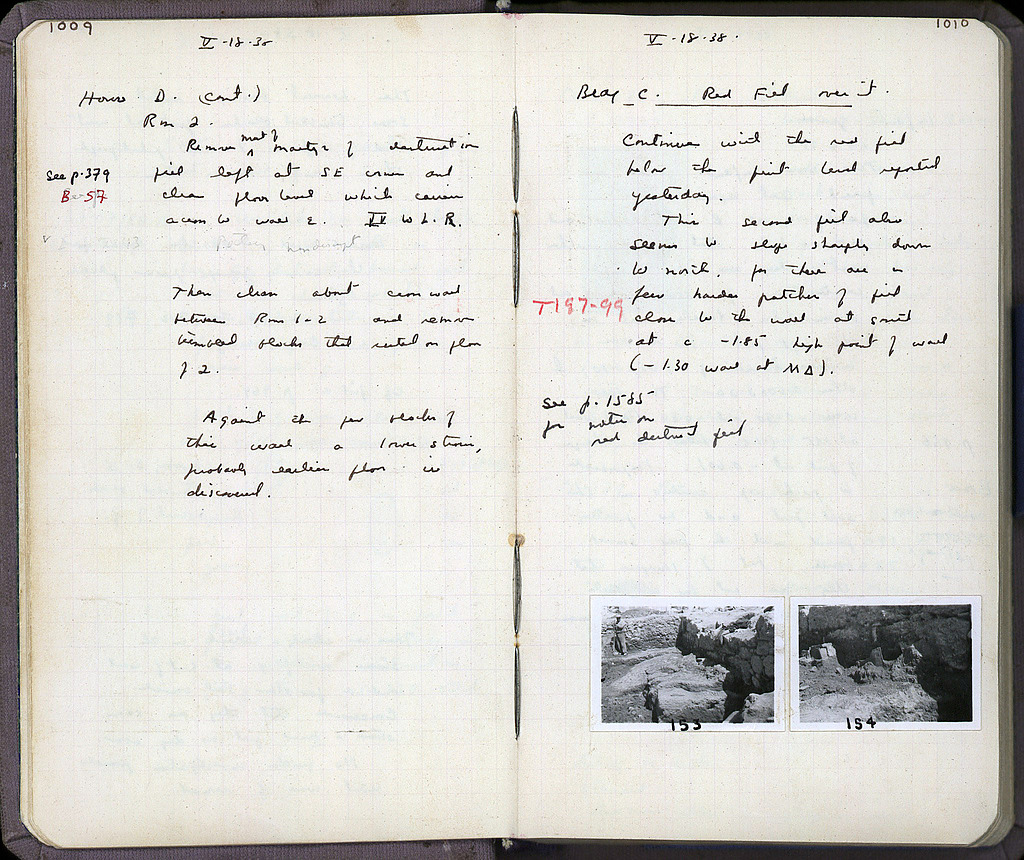 1009
V-18-38
House D. (cont.)
Rm 2.
Remove mat of martyr of destruction
see p. 379
fill left at SE corner and
B-57
clean floor level which comes
across to wall 2. IV W.L.R.
Pottery nondescript
Then clean about cross wall
between Rms 1-2 and remove
tumbled blocks that rested on floor
of 2.
Against the few blocks of
this wall a lower stratum,
probably earlier floor is
discovered.
1010
V-18-38.
Bldg C. Red Fill over it.
Continue with the red fill
below the first level reported
yesterday.
This second fill also
seems to slope sharply down
to north, for there are a
T197-99
few harder patches of fill
close to the wall at south
at c -1.85 high point of wall
(-1.30 wall at MΔ).
see p. 1585
for notes on
red destruct fill
153
154